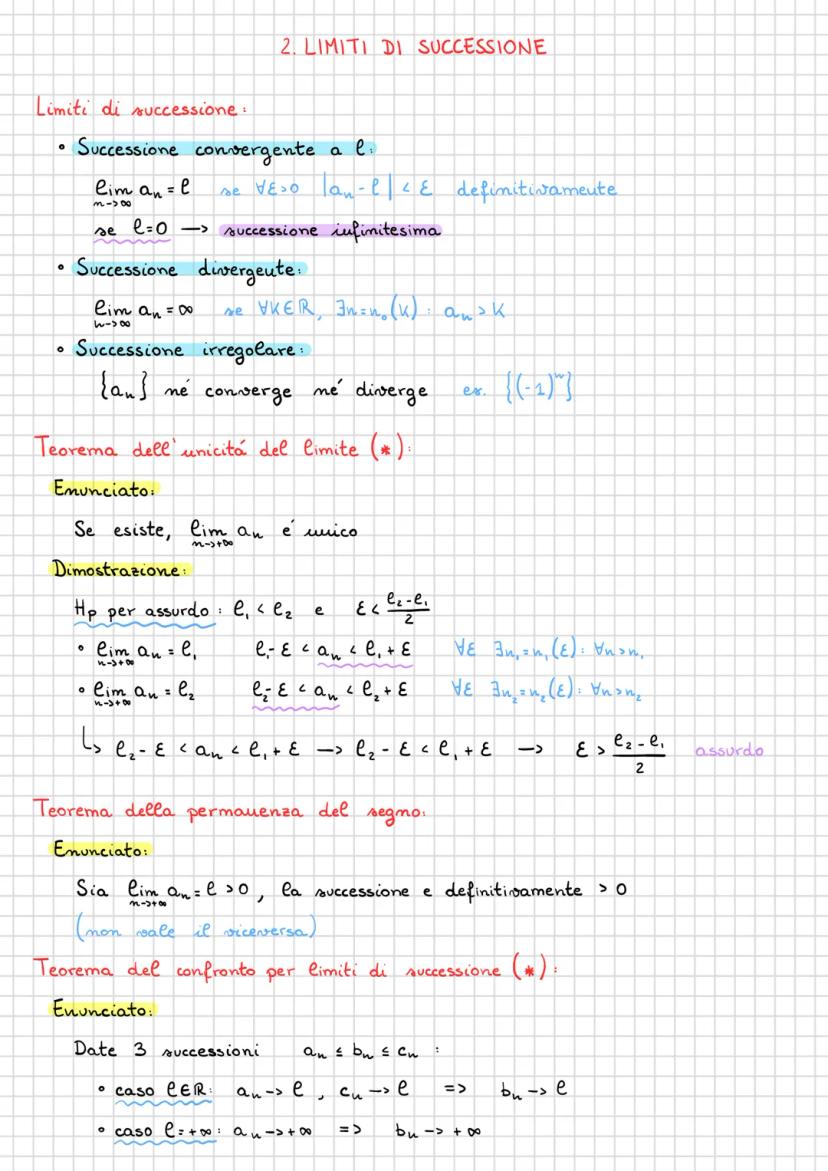 2. LIMITI DI SUCCESSIONE
Limiti di successione:
• Successione convergente a l:
lim aₙ = l se ∀ε>0 |aₙ - l| < ε definitivamente
n->∞
se l=0 -> successione infinitesima
• Successione divergente:
lim aₙ = ∞ se ∀K∈R, ∃n=n₀(K) : aₙ > K
n->∞
• Successione irregolare:
{aₙ} né converge né diverge es. {(-1)ⁿ}
Teorema dell'unicitá del limite (*):
Enunciato:
Se esiste, lim aₙ é unico
n->+∞
Dimostrazione:
Hp per assurdo : l₁ < l₂ e ε < (l₂-l₁)/2
• lim aₙ = l₁ l₁- ε < aₙ < l₁ + ε ∀ε ∃n₁=n₁(ε): ∀n>n₁
n->+∞
• lim aₙ = l₂ l₂- ε < aₙ < l₂ + ε ∀ε ∃n₂=n₂(ε): ∀n>n₂
n->+∞
↳ l₂ - ε < aₙ < l₁ + ε -> l₂ - ε < l₁ + ε -> ε > (l₂-l₁)/2 assurdo
Teorema della permanenza del segno:
Enunciato:
Sia lim aₙ = l >0, la successione e definitivamente > 0
n->+∞
(non vale il viceversa)
Teorema del confronto per limiti di successione (*):
Enunciato:
Date 3 successioni aₙ ≤ bₙ ≤ cₙ :
• caso l∈R: aₙ -> l , cₙ -> l => bₙ -> l
• caso l=+∞: aₙ ->+∞ => bₙ -> +∞